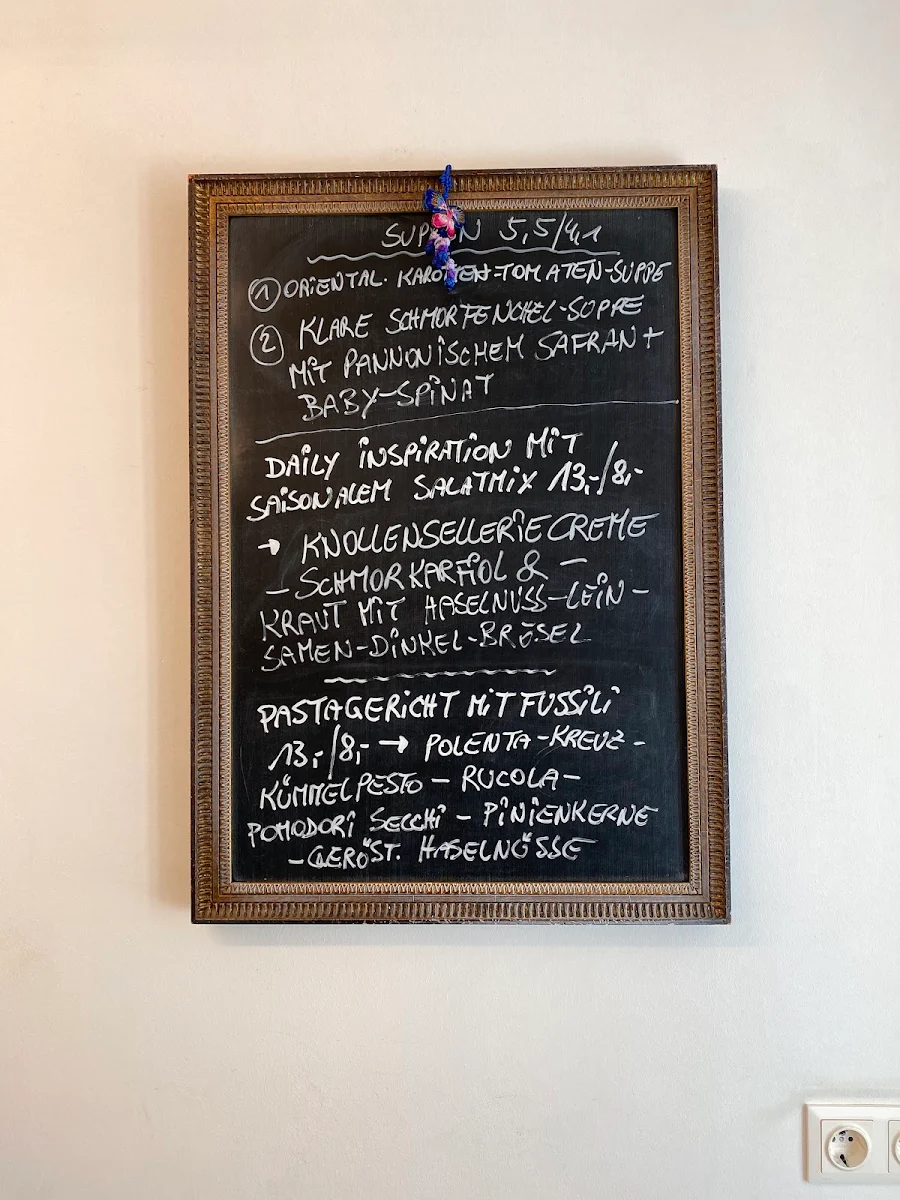 SUPPEN 5,5/4,1
① ORIENTAL. KAROTTEN-TOMATEN-SUPPE
② KLARE SCHMORFENCHEL-SUPPE
MIT PANNONISCHEM SAFRAN +
BABY-SPINAT
DAILY INSPIRATION MIT
SAISONALEM SALATMIX 13,-/8,-
→ KNOLLENSELLERIECREME
- SCHMORKARFIOL & -
KRAUT MIT HASELNUSS-LEIN-
SAMEN-DINKEL-BRÖSEL
PASTAGERICHT MIT FUSSILI
13,-/8,- → POLENTA-KREUZ-
KÜMMELPESTO - RUCOLA-
POMODORI SECCHI - PINIENKERNE
-GERÖST. HASELNÜSSE